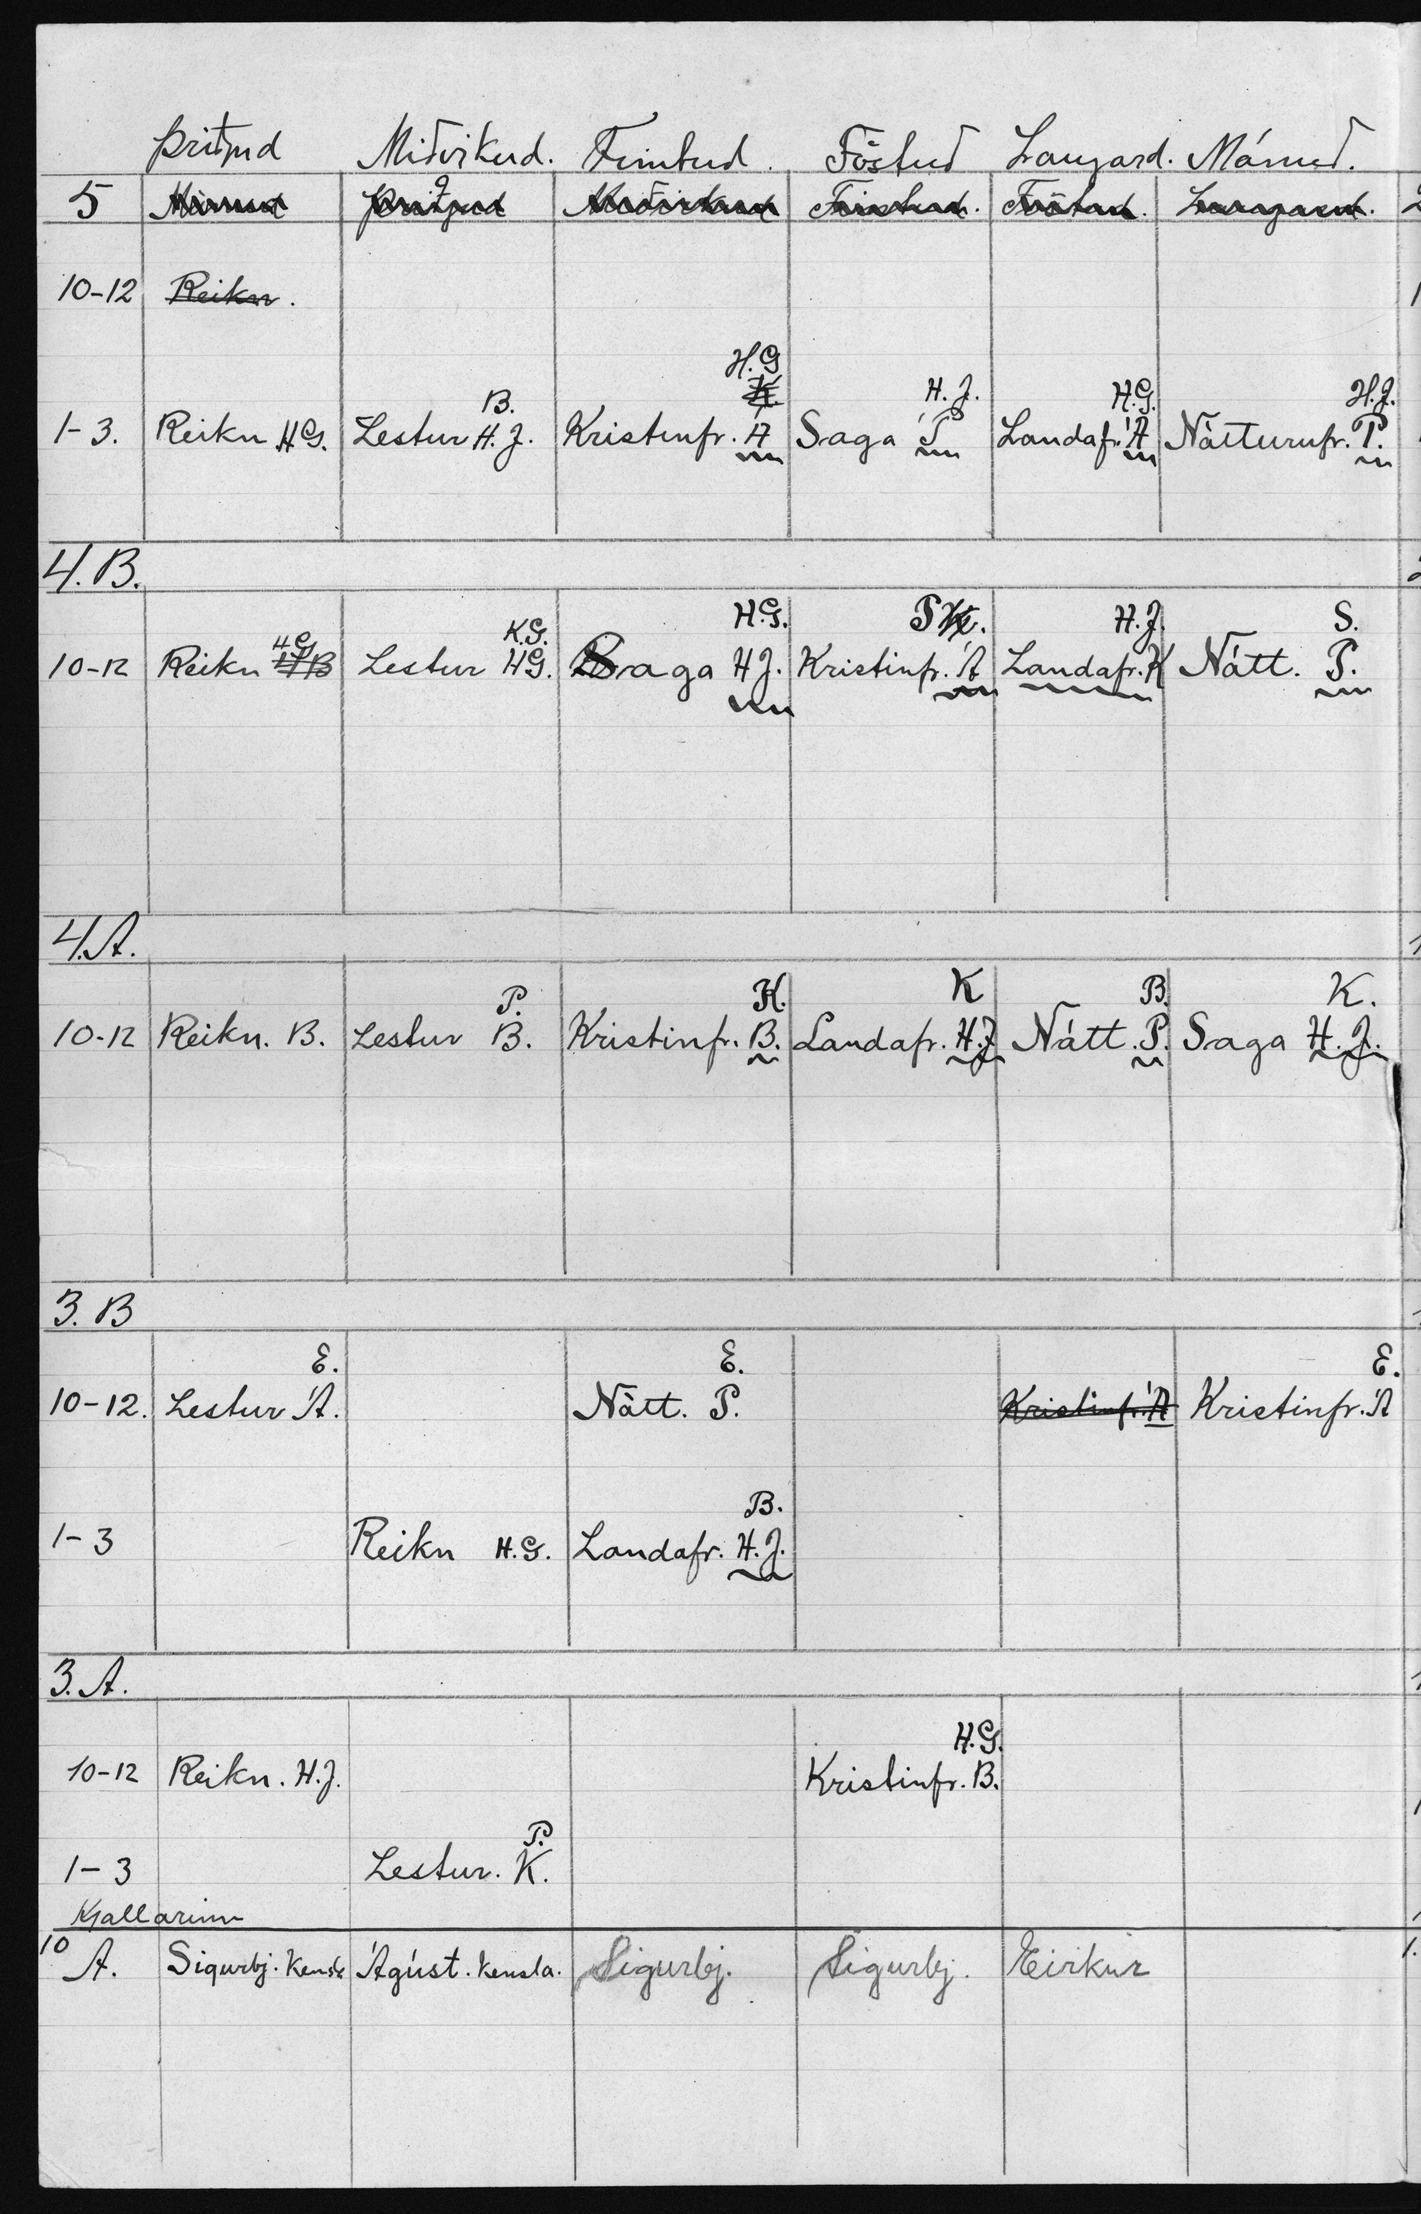 Þriðjud Miðvikud. Fimtud. Föstud Laugard. Mánud.
5 Mánud Þriðjud Miðvikud Fimtud. Föstud. Laugard.
10-12 Reikn.
H.G
K.
B. H.J. H.G. H.J.
1-3. Reikn HG. Lestur H.J. Kristinfr. Á Saga P Landafr. Á Nátturufr. P.
4.B.
H.G. K.G. H.G. P H.J. S.
10-12 Reikn HB Lestur HG. Saga HJ. Kristinfr. Á Landafr. K Nátt. P.
4.A.
P. K. K B. K.
10-12 Reikn. B. Lestur B. Kristinfr. B. Landafr. H.J Nátt. P. Saga H.J.
3.B
E. E. E.
10-12. Lestur Á. Nátt. P. Kristinfr. Á Kristinfr. Á
B.
1-3 Reikn H.G. Landafr. H.J.
3.A.
H.G.
10-12 Reikn. H.J. Kristinfr. B.
P.
1-3 Lestur. K.
Kjallarinn
10 A. Sigurbj. Kensla Ágúst. Kensla. Sigurbj. Sigurbj. Eirikur